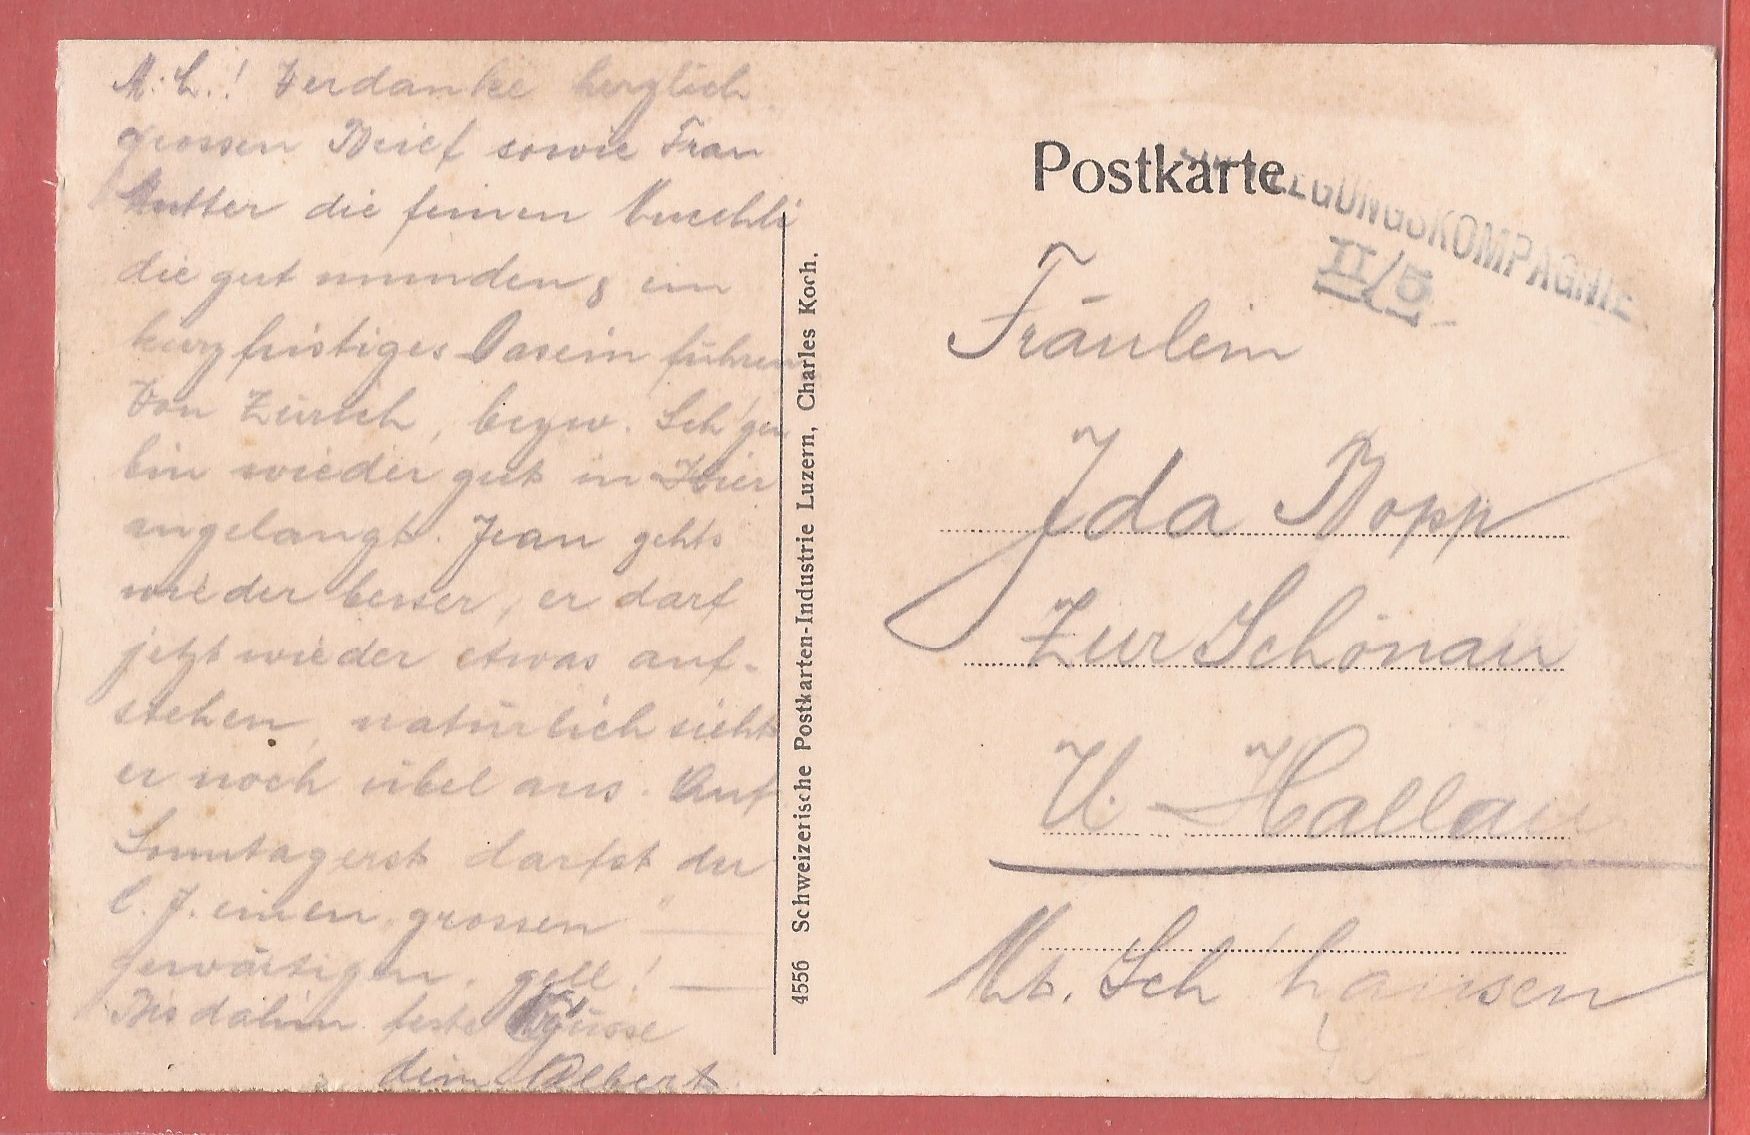 M. L.! Verdanke herzlich
grossen Brief sowie Frau
Mutter die feinen
die gut munden & ein
kurzfristiges Dasein führen
Von Zürich, bezw. Sch'gen
bin wieder gut in hier
angelangt. Jean gehts
wieder besser, er darf
jetzt wieder etwas auf-
stehen, natürlich sieht
er noch übel aus. Auf
Sonntag erst darfst du
l. J. einen grossen "
gewärtigen, gell! —
Bis dahin feste Grüsse
dein Albert
4556 Schweizerische Postkarten-Industrie Luzern, Charles Koch.
Postkarte
LEGUNGSKOMPAGNIE
II/5
Fräulein
Ida Bopp
Zur Schönau
U. Hallau
Kt. Sch'hausen